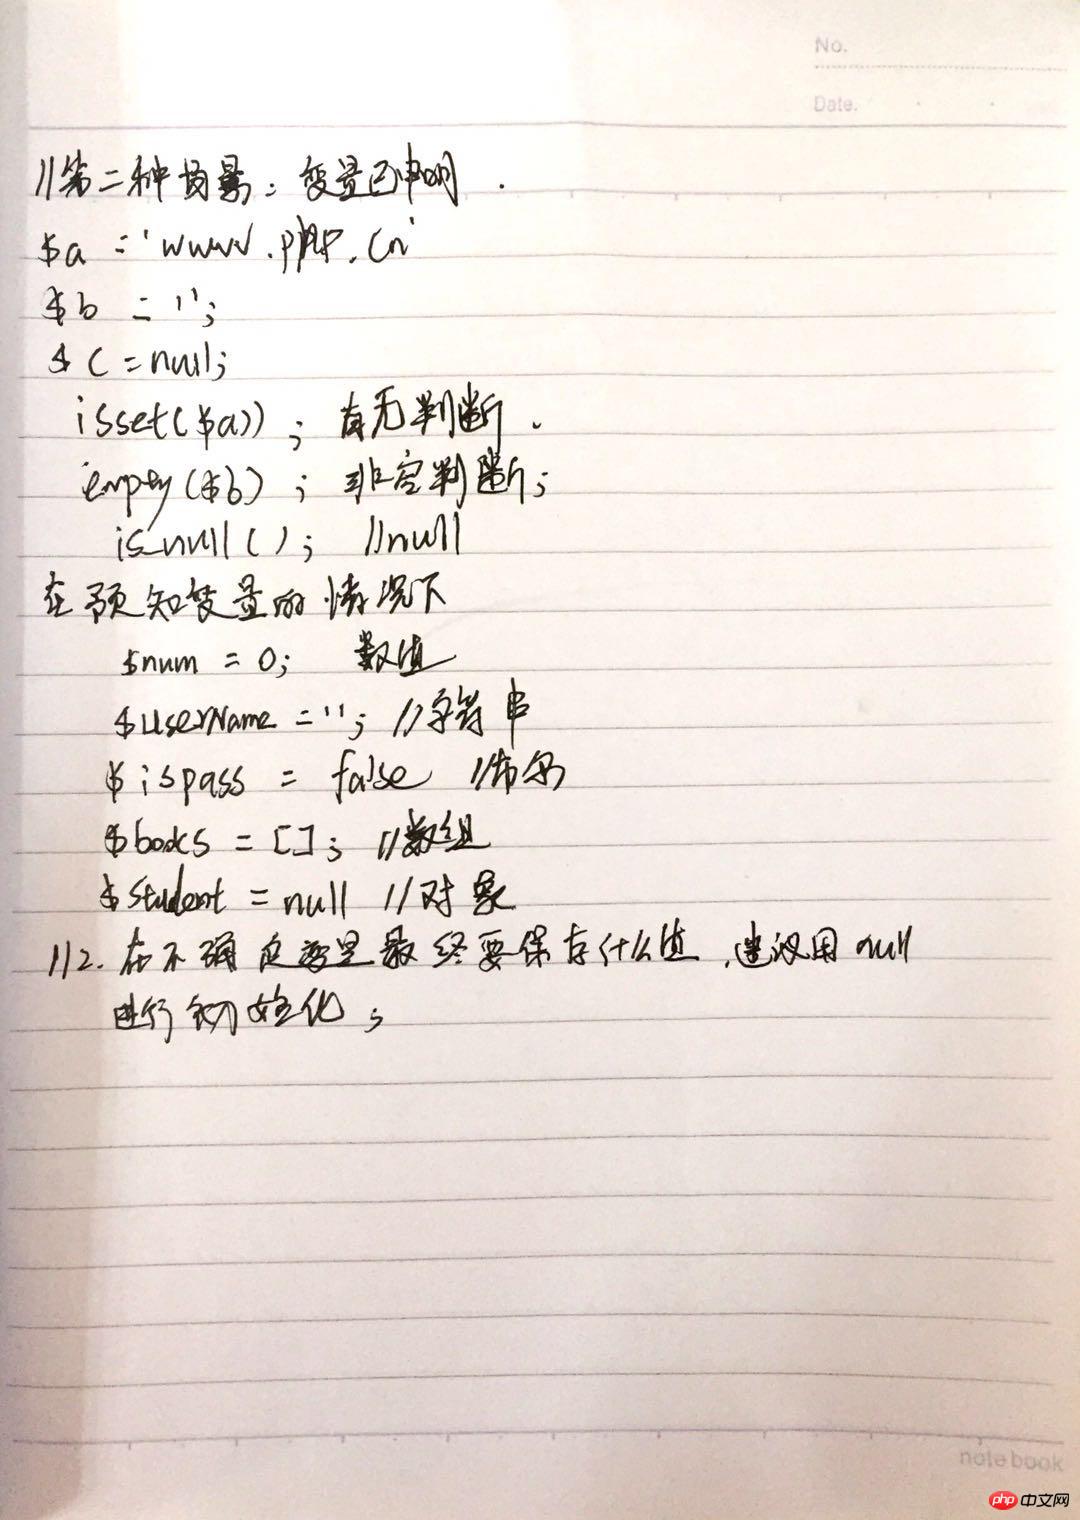 No.
Date.
//第二种场景：变量已申明.
$a = 'www.php.cn'
$b = '';
$c = null;
isset($a)); 有无判断.
empty($b); 非空判断;
is_null(); //null
在预知变量的情况下
$num = 0; 数值
$userName = ''; //字符串
$ispass = false //布尔
$books = []; //数组
$student = null //对象
//2. 在不确定变量最终要保存什么值,建议用null
进行初始化;
notebook
php中文网